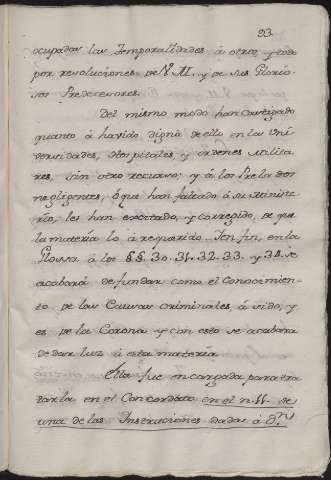 93
ocupados las Temporalidades á otros, y todo
por resoluciones de V. M. y de sus Glorio-
sos Predecesores.
Del mismo modo han castigado
quanto á havido digno de ello en las Uni-
versidades, Hospitales, y ordenes Milita-
res, sin otro recurso; y á los Prelados
negligentes, ó que han faltado á su Ministe-
rio, les han excitado, y corregido, segun
la materia lo á requerido. Y en fin, en la
Glossa á los §§. 30. 31. 32. 33. y 34. se
acabará de fundar como el Conocimien-
to de las Causas criminales, á sido, y
es de la Corona y con esto se acabara
de dar luz á esta materia.
Ella fue encargada para tra-
tarla en el Concordato en el n. 11. de
una de las Instrucciones dadas á Dn.